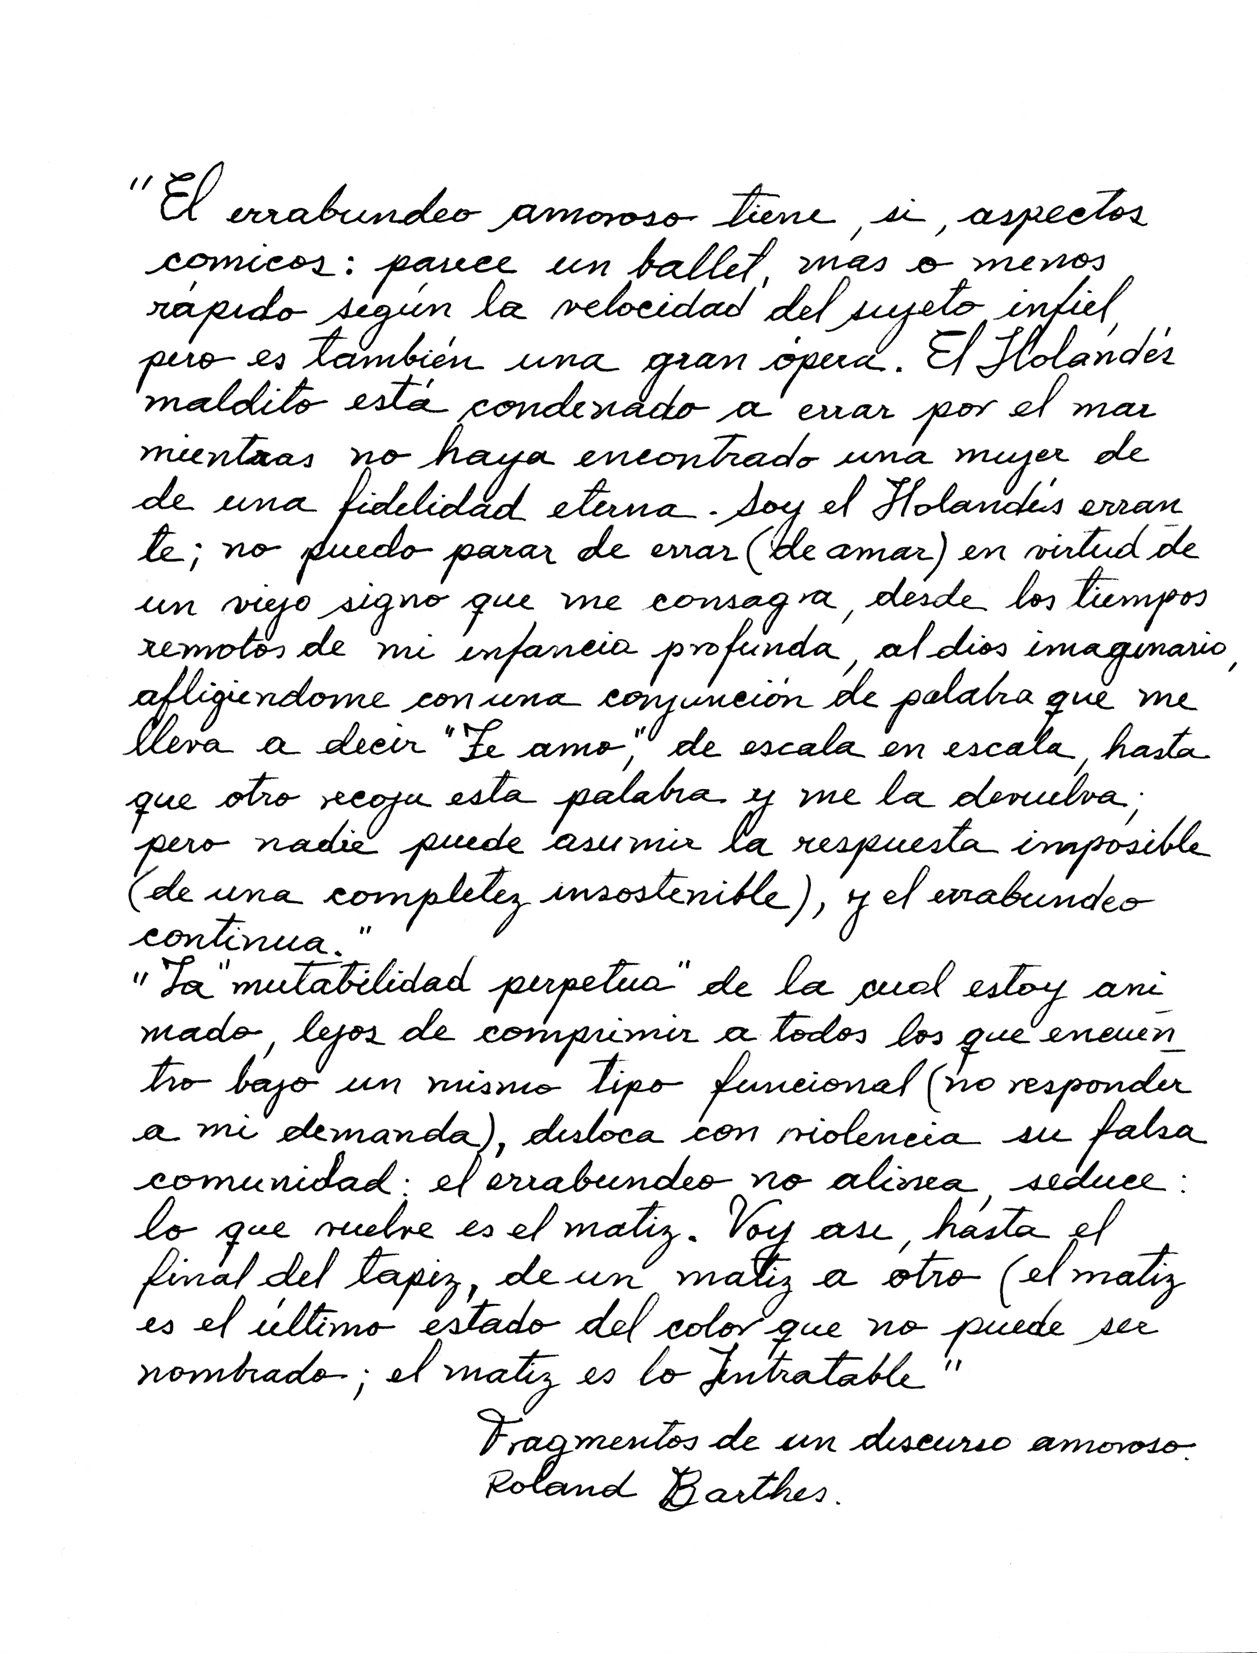 "El errabundeo amoroso tiene, si, aspectos
comicos: parece un ballet, mas o menos
rápido según la velocidad del sujeto infiel,
pero es también una gran ópera. El Holandés
maldito está condenado a errar por el mar
mientras no haya encontrado una mujer de
de una fidelidad eterna. Soy el Holandés erran
te; no puedo parar de errar (de amar) en virtud de
un viejo signo que me consagra, desde los tiempos
remotos de mi infancia profunda, al dios imaginario,
afligiendome con una conjunción de palabra que me
lleva a decir "Te amo", de escala en escala, hasta
que otro recoja esta palabra y me la devuelva;
pero nadie puede asumir la respuesta imposible
(de una completez insostenible), y el errabundeo
continua."
"La "mutabilidad perpetua" de la cual estoy ani
mado, lejos de comprimir a todos los que encuen
tro bajo un mismo tipo funcional (no responder
a mi demanda), disloca con violencia su falsa
comunidad: el errabundeo no alinea, seduce:
lo que vuelve es el matiz. Voy asi, hasta el
final del tapiz, de un matiz a otro (el matiz
es el último estado del color que no puede ser
nombrado; el matiz es lo Intratable"
Fragmentos de un discurso amoroso.
Roland Barthes.